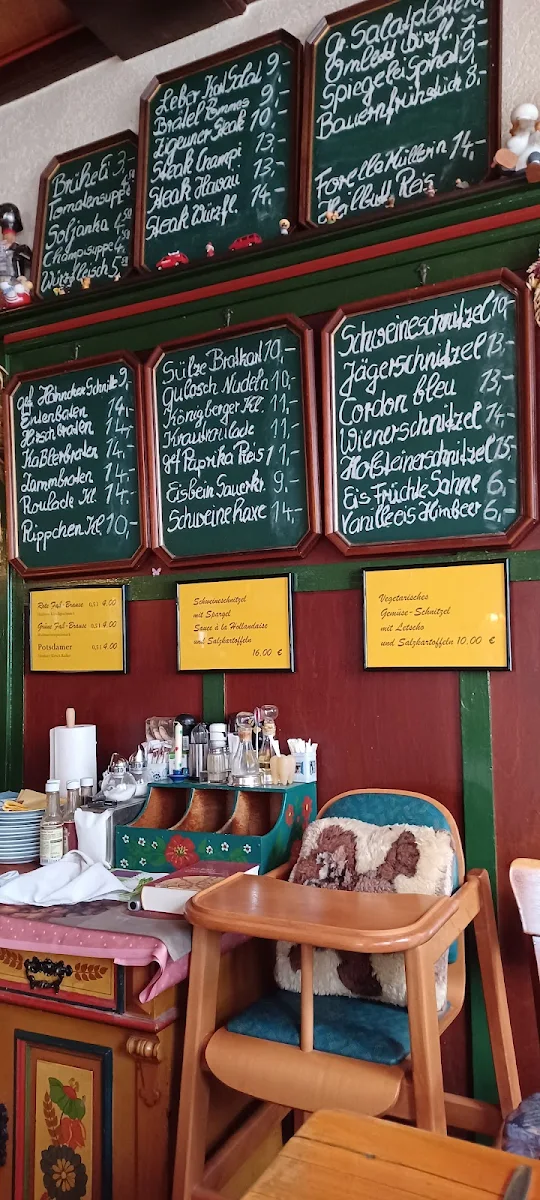 Brühei 3,-
Tomatensuppe 4,50
Soljanka 4,50
Champisuppe 4,50
Würzfleisch 5,50
Leber Kar Salat 9,-
Bratel Pommes 9,-
Zigeuner Steak 10,-
Steak Champi 13,-
Steak Hawai 13,-
Steak Würzfl. 14,-
Gr. Salatplatte 7,-
Omlett Würzfl. 9,-
Spiegelei Spinat 9,-
Bauernfrühstück 8,-
Forelle Müllerin 14,-
Heilbutt Reis
gef Hähnchen Schnitz 9,-
Entenbraten 14,-
Hirschbraten 14,-
Kaßlerbraten 14,-
Lammbraten 14,-
Roulade Kl. 14,-
Rippchen Kl 10,-
Sülze Bratkart 10,-
Gulasch Nudeln 10,-
Königberger Kl. 11,-
Krautroulade 11,-
gef Paprika Reis 11,-
Eisbein Sauerkr. 9,-
Schweinehaxe 14,-
Schweineschnitzel 10,-
Jägerschnitzel 13,-
Cordon bleu 13,-
Wienerschnitzel 14,-
Holsteinerschnitzel 15,-
Eis Früchte Sahne 6,-
Vanilleeis Himbeer 6,-
Rote Faß-Brause 0,5 l 4.00
Grüne Faß-Brause 0,5 l 4.00
Potsdamer 0,5 l 4.00
Schweineschnitzel
mit Spargel
Sauce à la Hollandaise
und Salzkartoffeln
16,00 €
Vegetarisches
Gemüse-Schnitzel
mit Letscho
und Salzkartoffeln 10.00 €